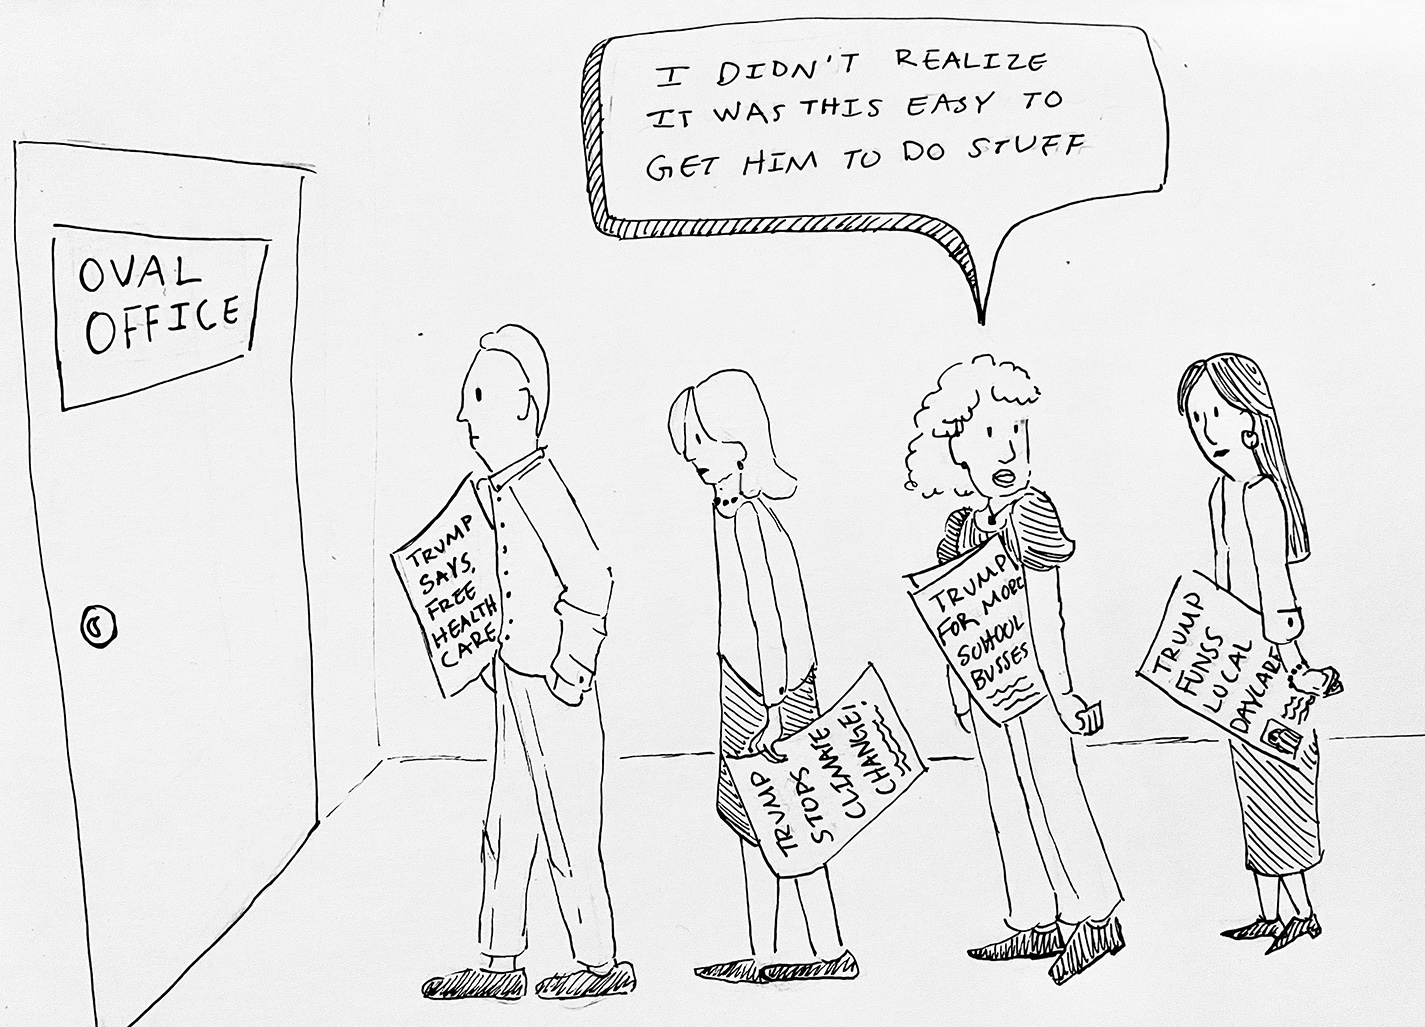 I DIDN'T REALIZE
IT WAS THIS EASY TO
GET HIM TO DO STUFF
OVAL
OFFICE
TRUMP
SAYS,
FREE
HEALTH
CARE
TRUMP
STOPS
CLIMATE
CHANGE!
TRUMP
FOR MORE
SCHOOL
BUSSES
TRUMP
FUNSS
LOCAL
DAYCARE